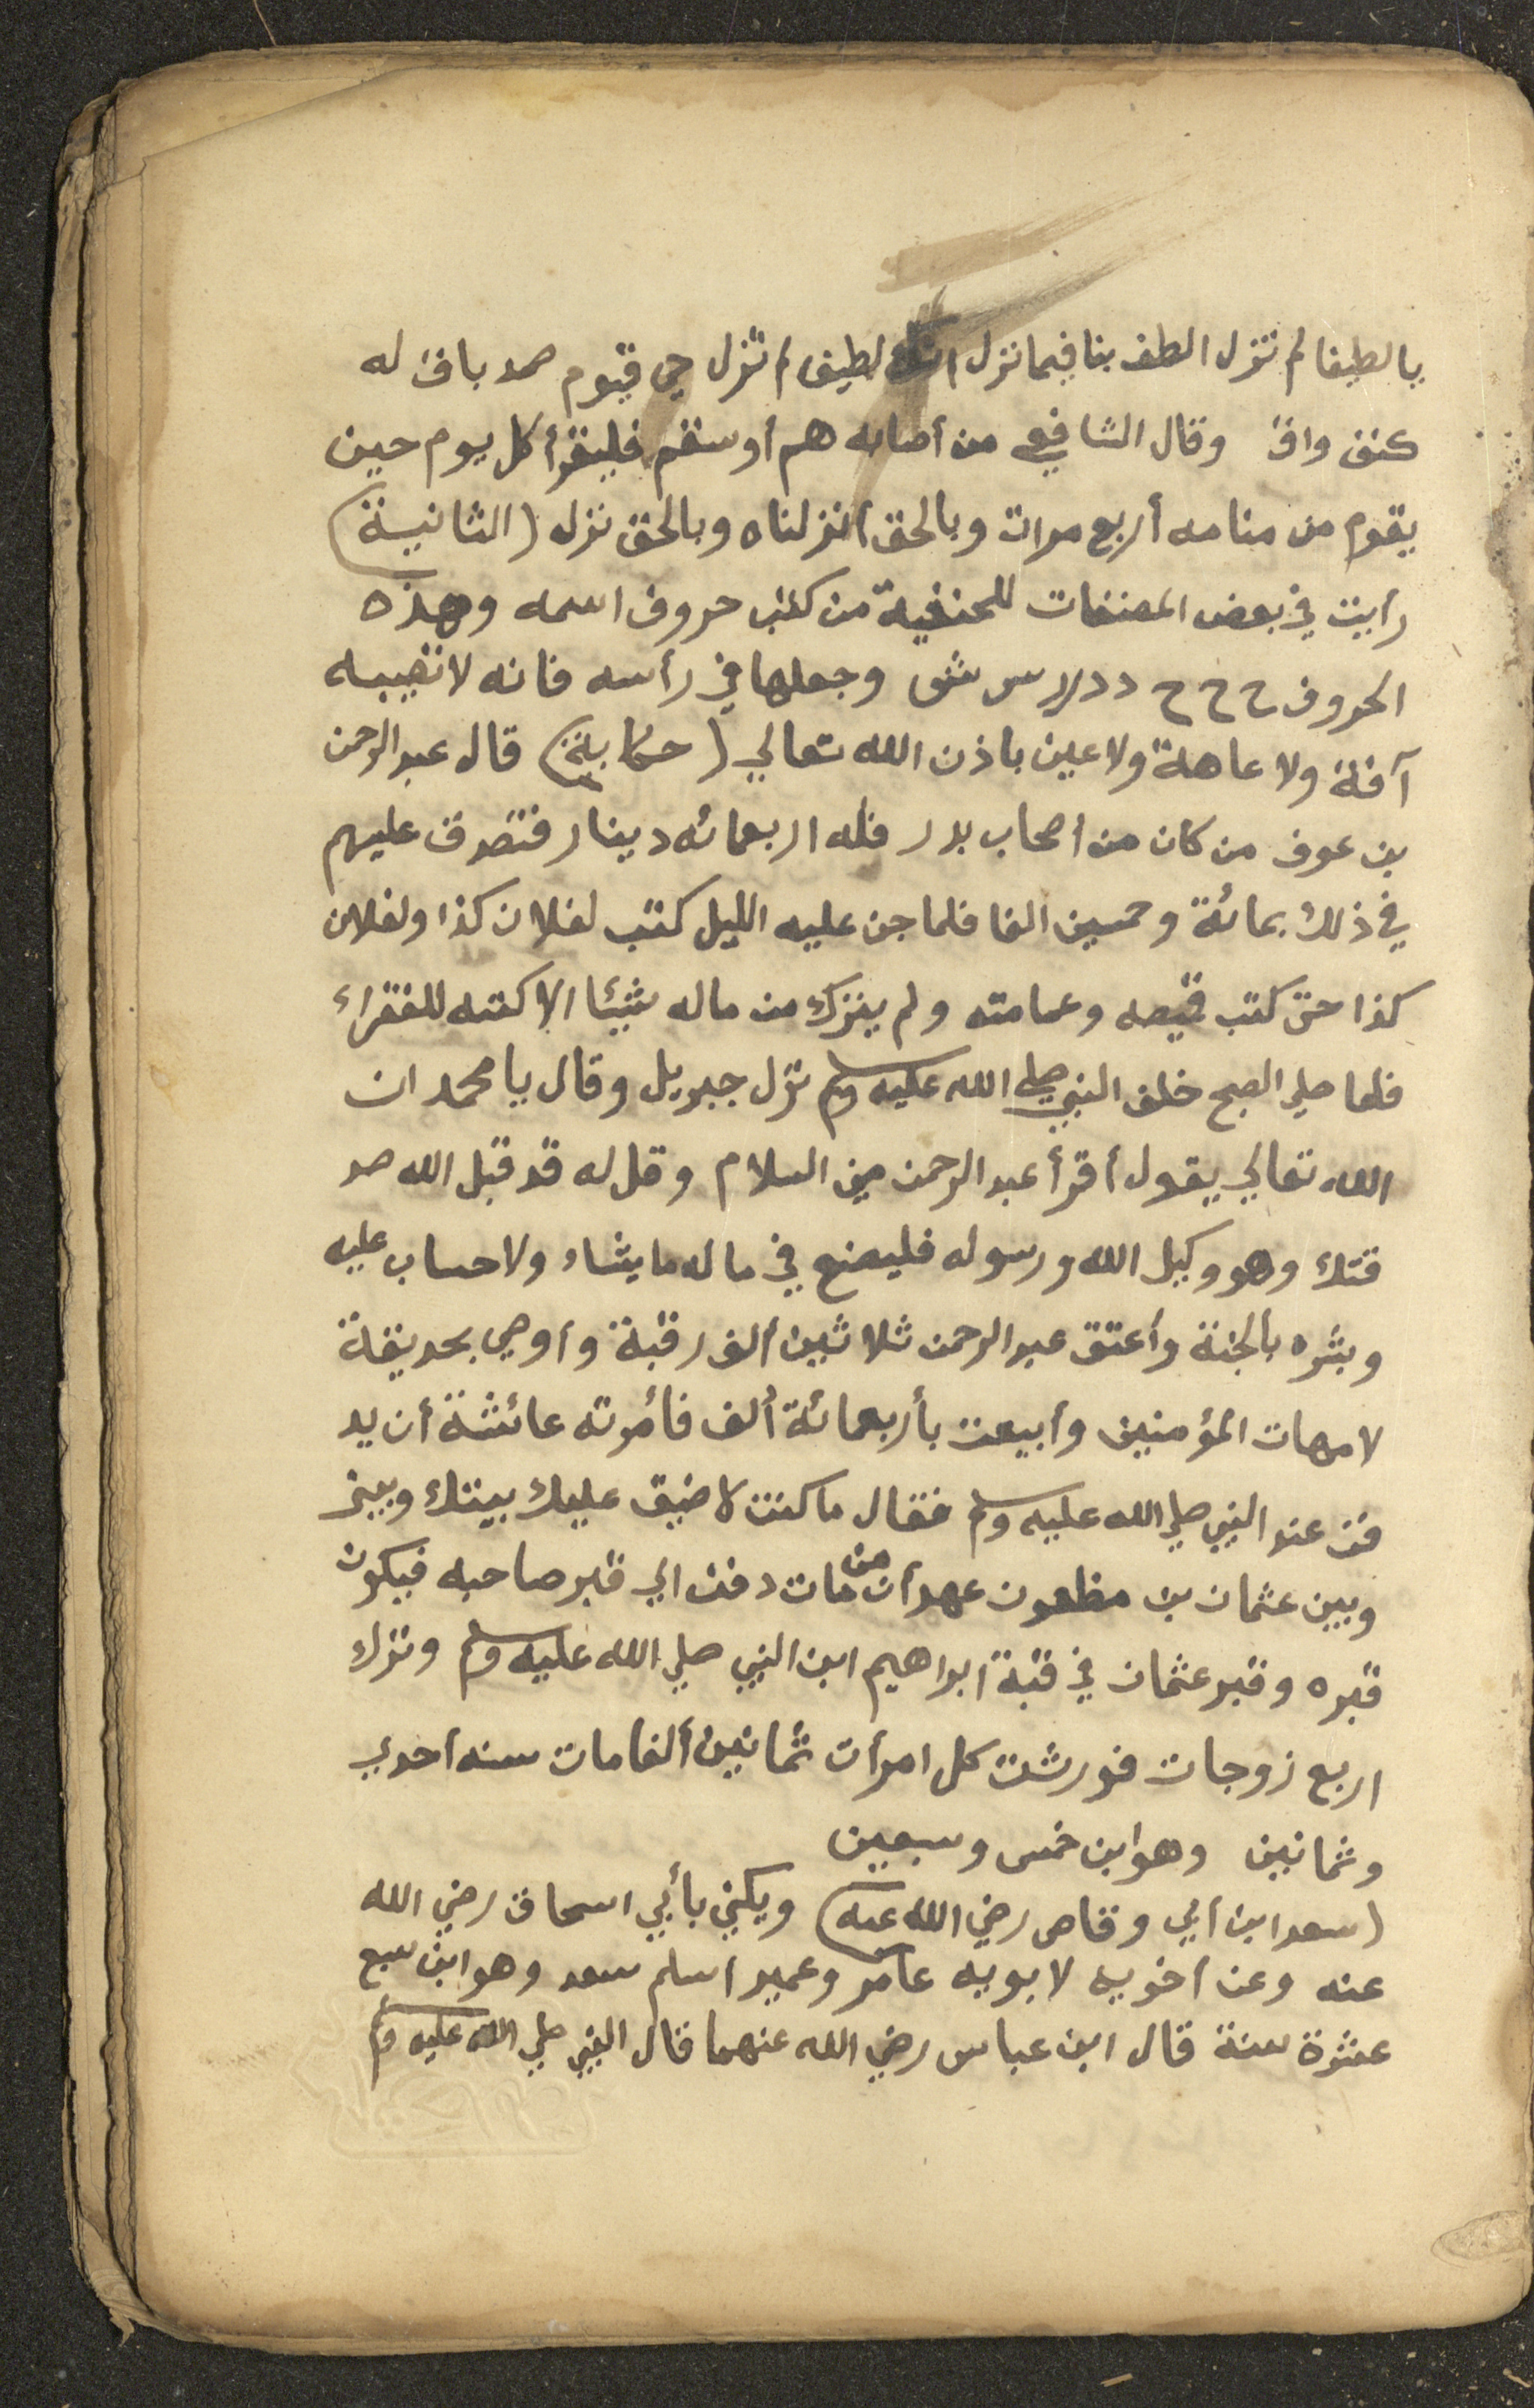 يا لطيفا لم تزل الطف بنا فيما نزل انك لطيف لم تزل حي قيوم صمد باق له
كنف واق وقال الشافعي من أصابه هم أو سقم فليقرأ كل يوم حين
يقوم من منامه أربع مرات وبالحق انزلناه وبالحق نزل (الثانية)
رأيت في بعض المصنفات للحنفية من كتب حروف اسمه وهذه
الحروف ح ح ح د د س ش وجعلها في رأسه فانه لا تصيبه
آفة ولا عاهة ولا عين باذن الله تعالي (حكاية) قال عبد الرحمن
بن عوف من كان من أصحاب بدر فله اربعمائه دينار فتصدق عليهم
في ذلك بمائة وخمسين الفا فلما جن عليه الليل كتب لفلان كذا ولفلان
كذا حتى كتب قميصه وعمامته ولم يترك من ماله شيئا الا كتبه للفقراء
فلما صلى الصبح خلف النبي صلي الله عليه وسلم نزل جبريل وقال يا محمد ان
الله تعالي يقول أقرأ عبد الرحمن مني السلام وقل له قد قبل الله صد
قتك وهو وكيل الله ورسوله فليصنع في ماله ما يشاء ولا حساب عليه
وبشره بالجنة وأعتق عبد الرحمن ثلاثين ألف رقبة وأوصي بحديقة
لامهات المؤمنين وأبيعت بأربعمائة ألف فأمرته عائشة أن يد
فن عند النبي صلي الله عليه وسلم فقال ما كنت لاضيق عليك بيتك وبيني
وبين عثمان بن مظعون عهد أن من مات دفن الي قبر صاحبه فيكون
قبره وقبر عثمان في قبة ابراهيم ابن النبي صلي الله عليه وسلم وترك
اربع زوجات فورثت كل امرأت ثمانين ألفا مات سنه احدي
وثمانين وهو ابن خمس وسبعين
(سعد ابن ابي وقاص رضي الله عنه) ويكني بأبي اسحاق رضي الله
عنه وعن اخويه لابويه عامر وعمير اسلم سعد وهو ابن سبع
عشرة سنة قال ابن عباس رضي الله عنهما قال النبي صلي الله عليه وسلم